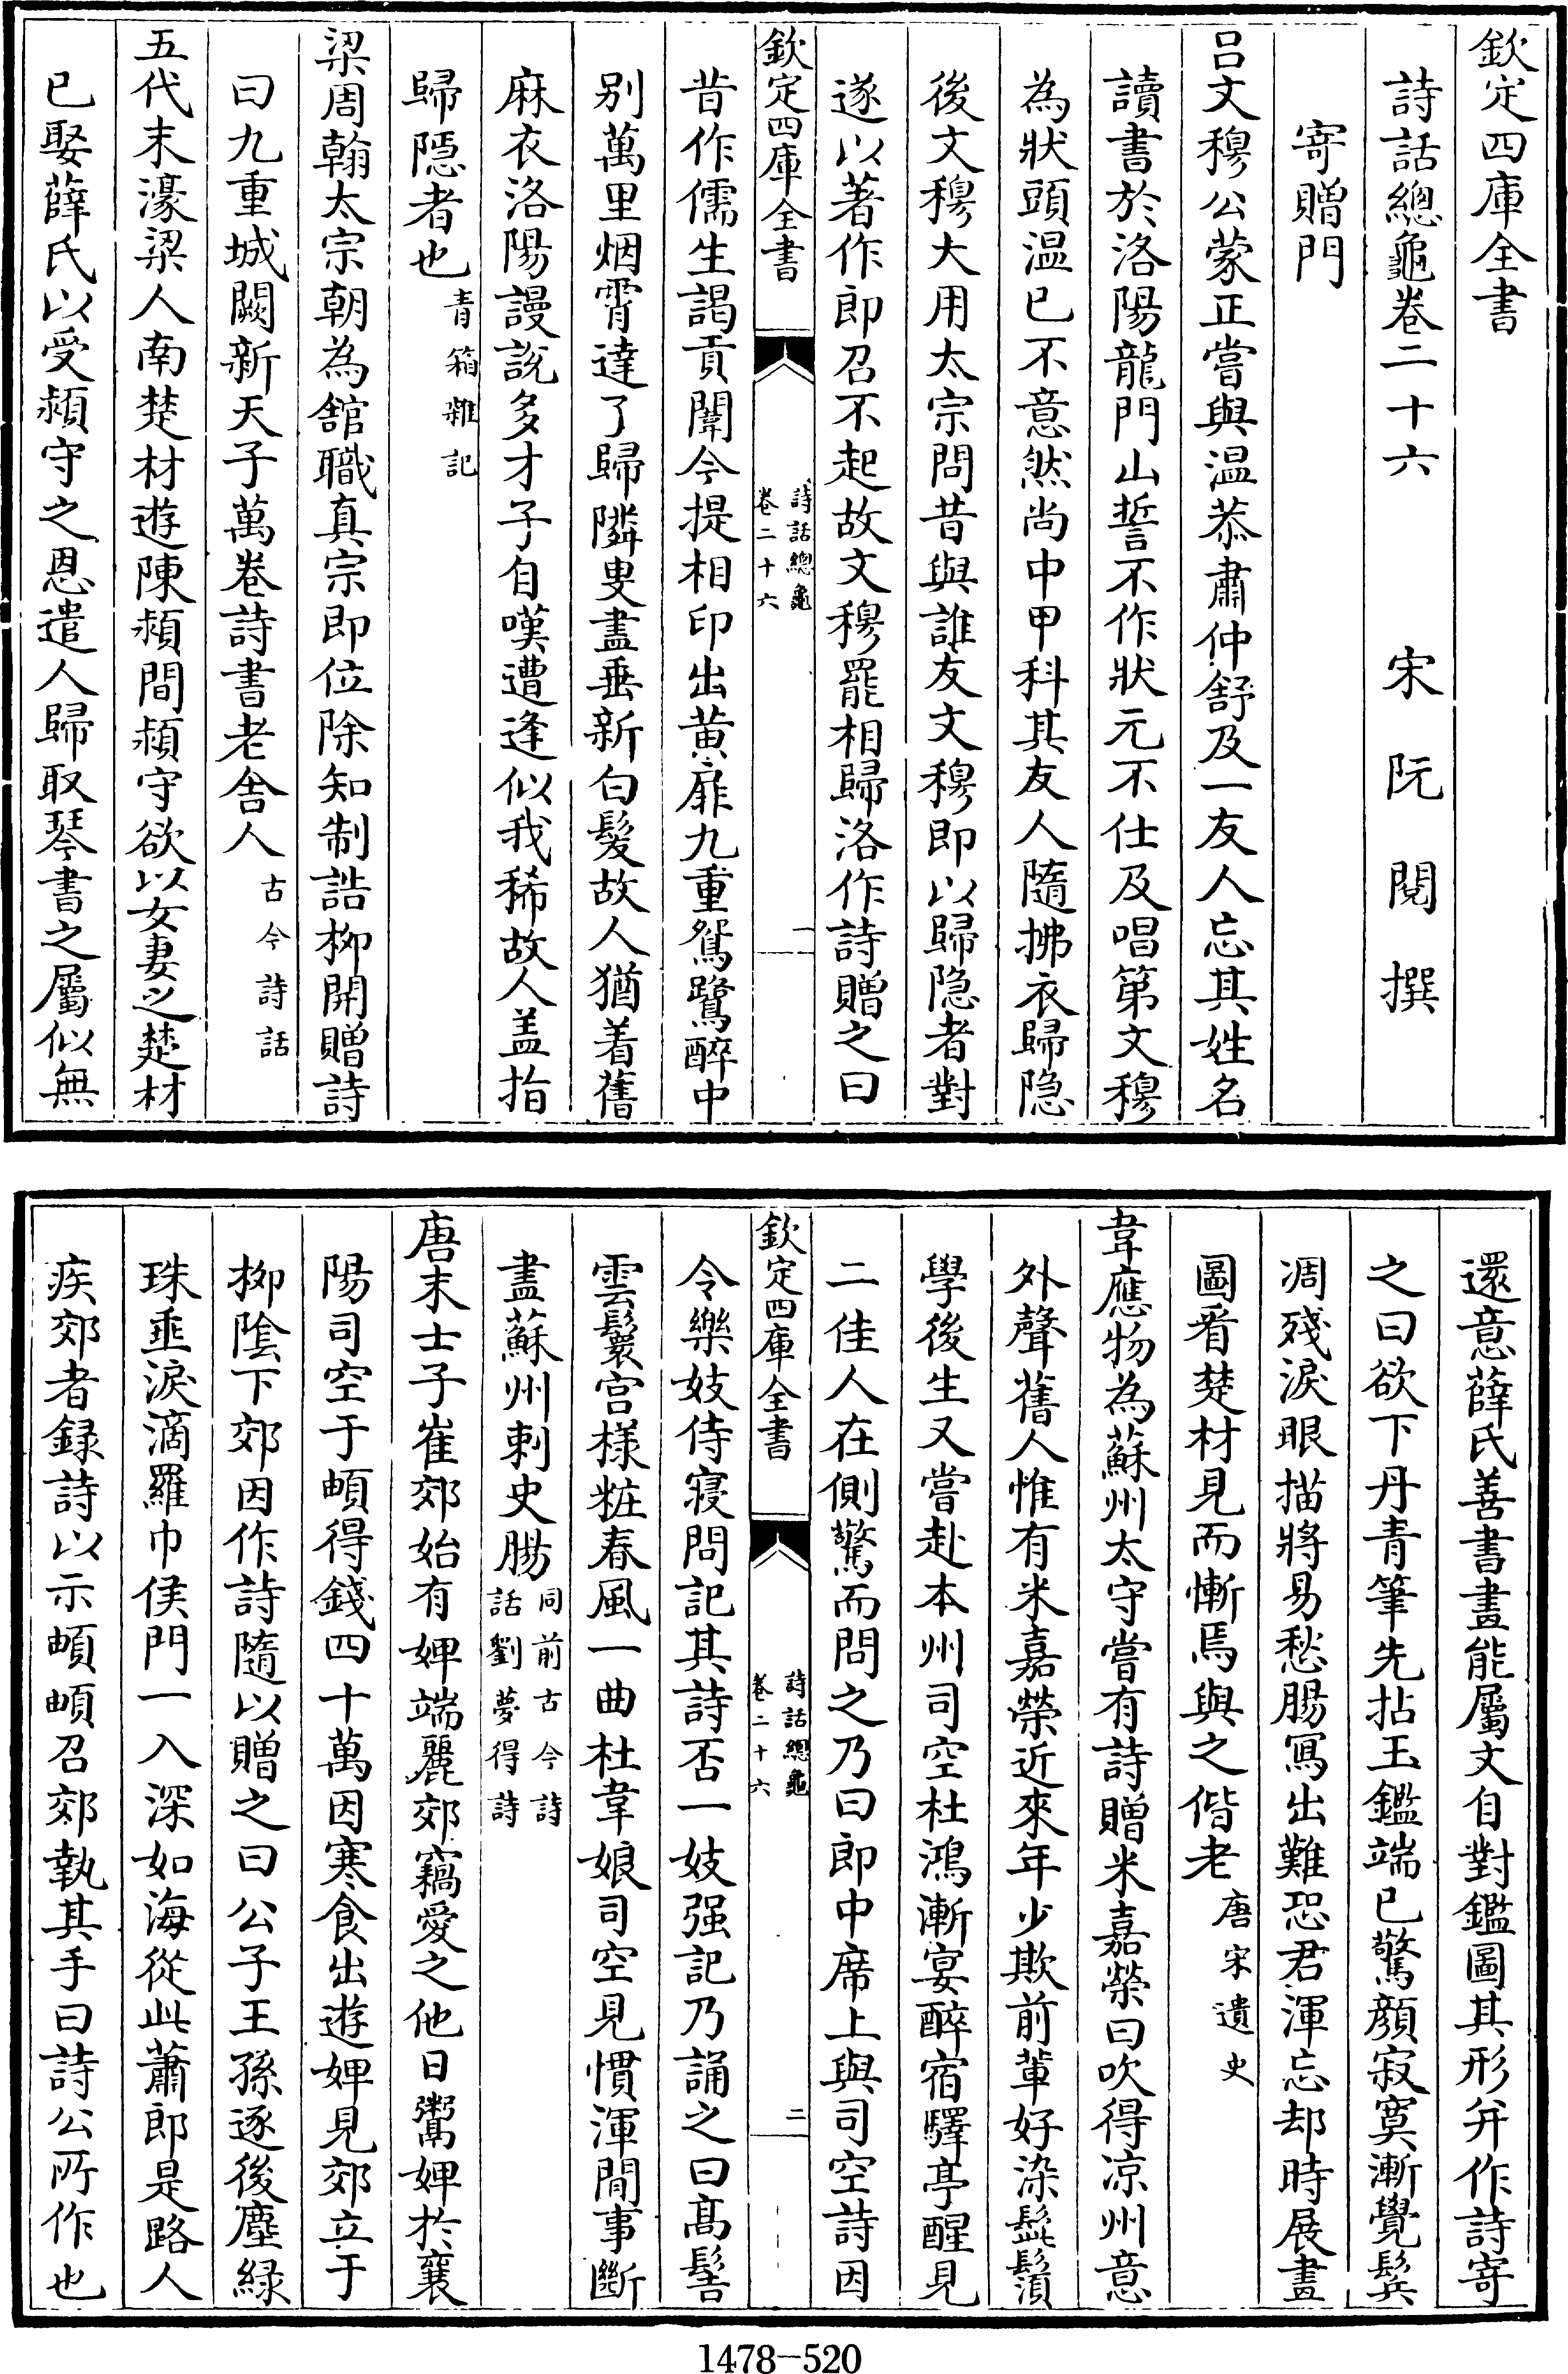 欽定四庫全書
詩話總龜卷二十六　　宋　阮　閱　撰
寄贈門
吕文穆公蒙正嘗與温恭肅仲舒及一友人忘其姓名
讀書於洛陽龍門山誓不作狀元不仕及唱第文穆
為狀頭温已不意然尚中甲科其友人隨拂衣歸隐
後文穆大用太宗問昔與誰友文穆即以歸隐者對
遂以著作即召不起故文穆罷相歸洛作詩贈之曰
欽定四庫全書
詩話總龜
卷二十六
一
昔作儒生謁貢闈今提相印出黄扉九重鴛鷺醉中
别萬里烟霄達了歸隣叟盡垂新白髮故人猶着舊
麻衣洛陽謾説多才子自嘆遭逢似我稀故人盖指
歸隱者也青箱雜記
梁周翰太宗朝為舘職真宗即位除知制誥栁開贈詩
曰九重城闕新天子萬卷詩書老舍人古今詩話
五代末濠梁人南楚材遊陳潁間潁守欲以女妻之楚材
已娶薛氏以受潁守之恩遣人歸取琴書之屬似無
還意薛氏善書畫能屬文自對鑑圖其形并作詩寄
之曰欲下丹青筆先拈玉鑑端已驚顔寂寞漸覺鬂
凋殘淚眼描將易愁腸寫出難恐君渾忘却時展畫
圖看楚材見而慚焉與之偕老唐宋遺史
韋應物為蘇州太守嘗有詩贈米嘉榮曰吹得凉州意
外聲舊人惟有米嘉榮近來年少欺前軰好染髭鬚
學後生又嘗赴本州司空杜鴻漸宴醉宿驛亭醒見
二佳人在側驚而問之乃曰郎中席上與司空詩因
欽定四庫全書
詩話總龜
卷二十六
二
令樂妓侍寢問記其詩否一妓强記乃誦之曰髙髻
雲鬟宫様粧春風一曲杜韋娘司空見慣渾閒事斷
盡蘇州刺史腸同前古今詩
話劉夢得詩
唐末士子崔郊始有婢端麗郊竊愛之他日鬻婢於襄
陽司空于頔得錢四十萬因寒食出遊婢見郊立于
栁隂下郊因作詩隨以贈之曰公子王孫逐後塵緑
珠垂淚滴羅巾侯門一入深如海從此蕭郎是路人
疾郊者録詩以示頔頔召郊執其手曰詩公所作也
1478-520